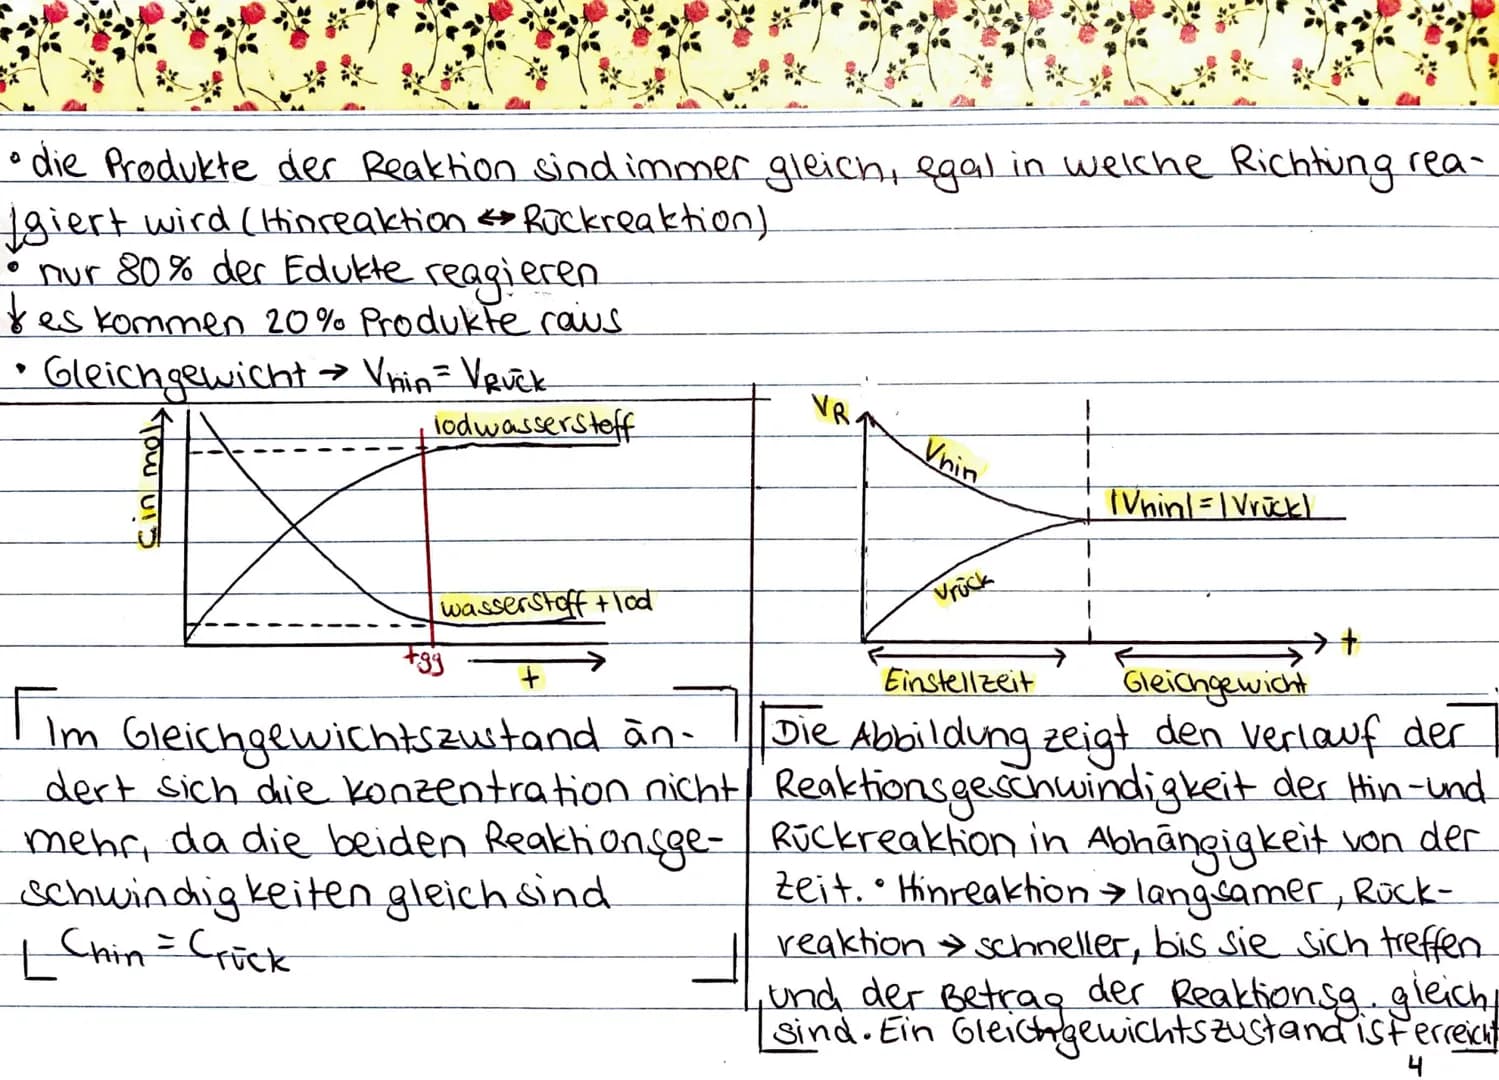 • die Produkte der Reaktion sind immer gleich, egal in welche Richtung rea-
↓giert wird (Hinreaktion ↔ Rückreaktion)
• nur 80% der Edukte reagieren
↓ es kommen 20% Produkte raus
• Gleichgewicht → Vhin = VRück
c in mol
Iodwasserstoff
wasserstoff + Iod
tgg
t
VR
Vhin
Vrück
|Vhin| = |Vrück|
t
Einstellzeit
Gleichgewicht
Im Gleichgewichtszustand än-
dert sich die Konzentration nicht
mehr, da die beiden Reaktionsge-
schwindigkeiten gleich sind
Chin = Crück
Die Abbildung zeigt den Verlauf der
Reaktionsgeschwindigkeit der Hin-und
Rückreaktion in Abhängigkeit von der
Zeit. • Hinreaktion → langsamer, Rück-
reaktion → schneller, bis sie sich treffen
und der Betrag der Reaktionsg. gleich
sind. Ein Gleichgewichtszustand ist erreicht
4